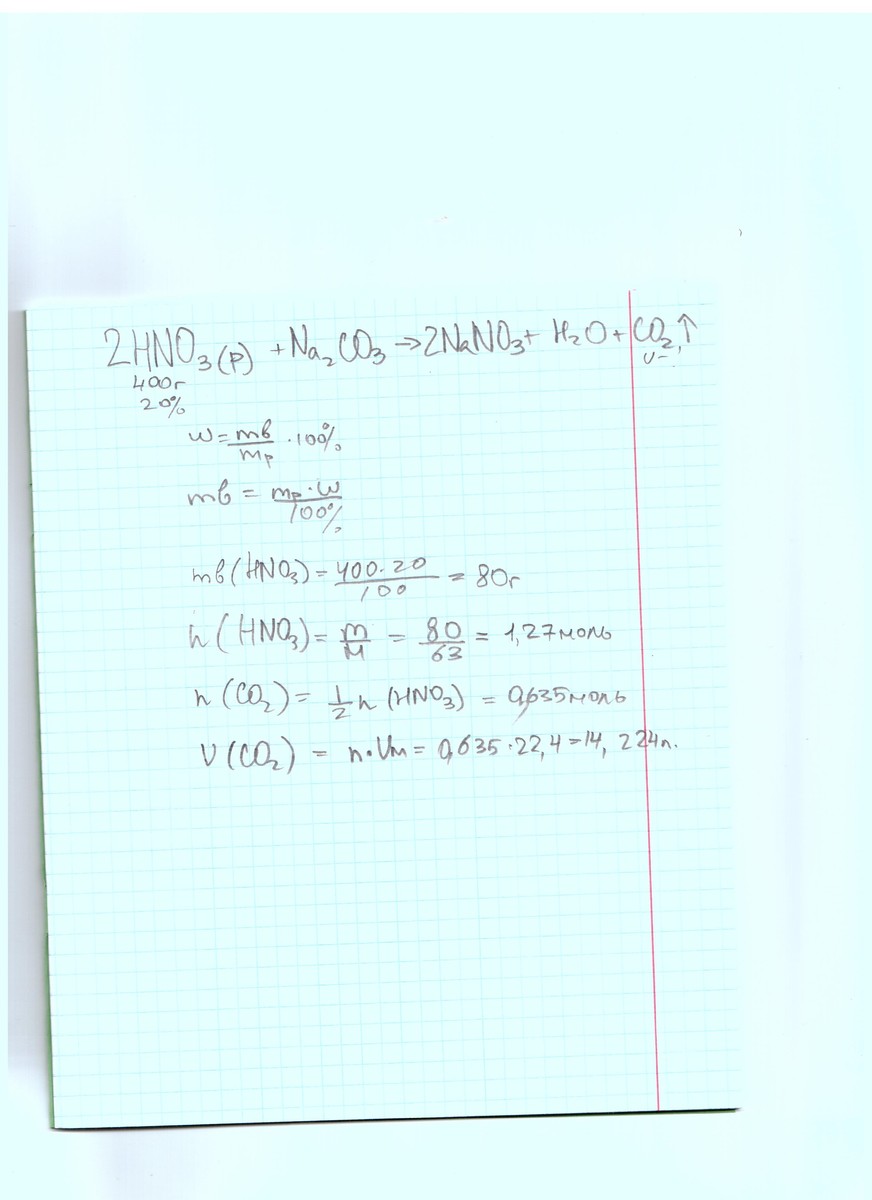 2HNO₃(р) + Na₂CO₃ → 2NaNO₃ + H₂O + CO₂↑
400г V–
20%
w = mв/mр · 100%
mв = mр·w/100%
mв(HNO₃) = 400·20/100 = 80г
n(HNO₃) = m/M = 80/63 = 1,27моль
n(CO₂) = 1/2 n(HNO₃) = 0,635моль
V(CO₂) = n·Vm = 0,635·22,4 = 14,224л.